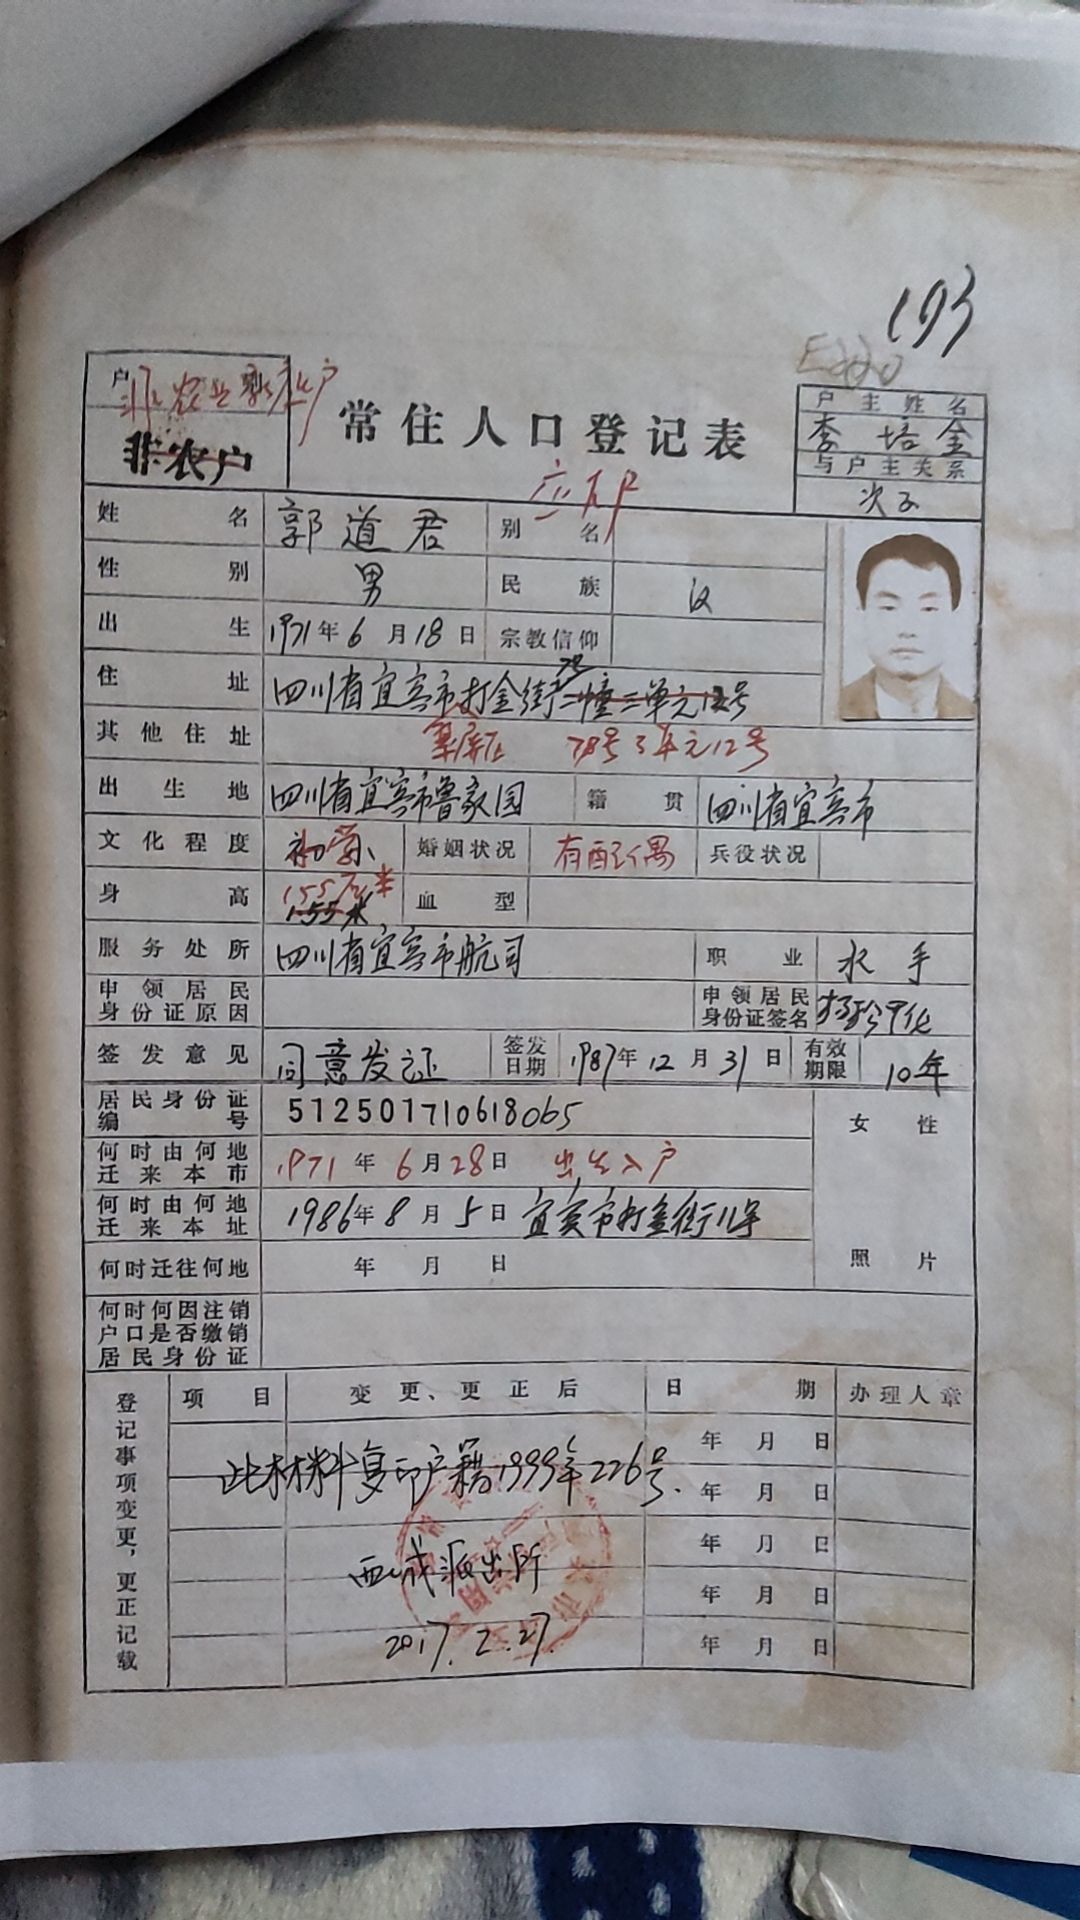 193
户
非农业家庭户
非农户
常住人口登记表
户主姓名
李培金
与户主关系
次子
姓名 郭道君 别名
性别 男 民族 汉
出生 1971年6月18日 宗教信仰
住址 四川省宜宾市打金街二幢二单元12号
其他住址 78号3单元12号
出生地 四川省宜宾市鲁家园 籍贯 四川省宜宾市
文化程度 初 婚姻状况 有配偶 兵役状况
身高 155厘米 1.55米 血型
服务处所 四川省宜宾市航司 职业 水手
申领居民身份证原因 申领居民身份证签名
签发意见 同意发证 签发日期 1987年12月31日 有效期限 10年
居民身份证编号 512501710618065 女性
何时由何地迁来本市 1971年6月28日 出生入户
何时由何地迁来本址 1986年8月5日 宜宾市打金街11号
照片
何时迁往何地 年 月 日
何时何因注销户口是否缴销居民身份证
登记事项变更、更正记载
项目 变更、更正后 日期 办理人章
年 月 日
此材料复印户籍1999年226号.
年 月 日
年 月 日
西城派出所
年 月 日
2017.2.27
年 月 日